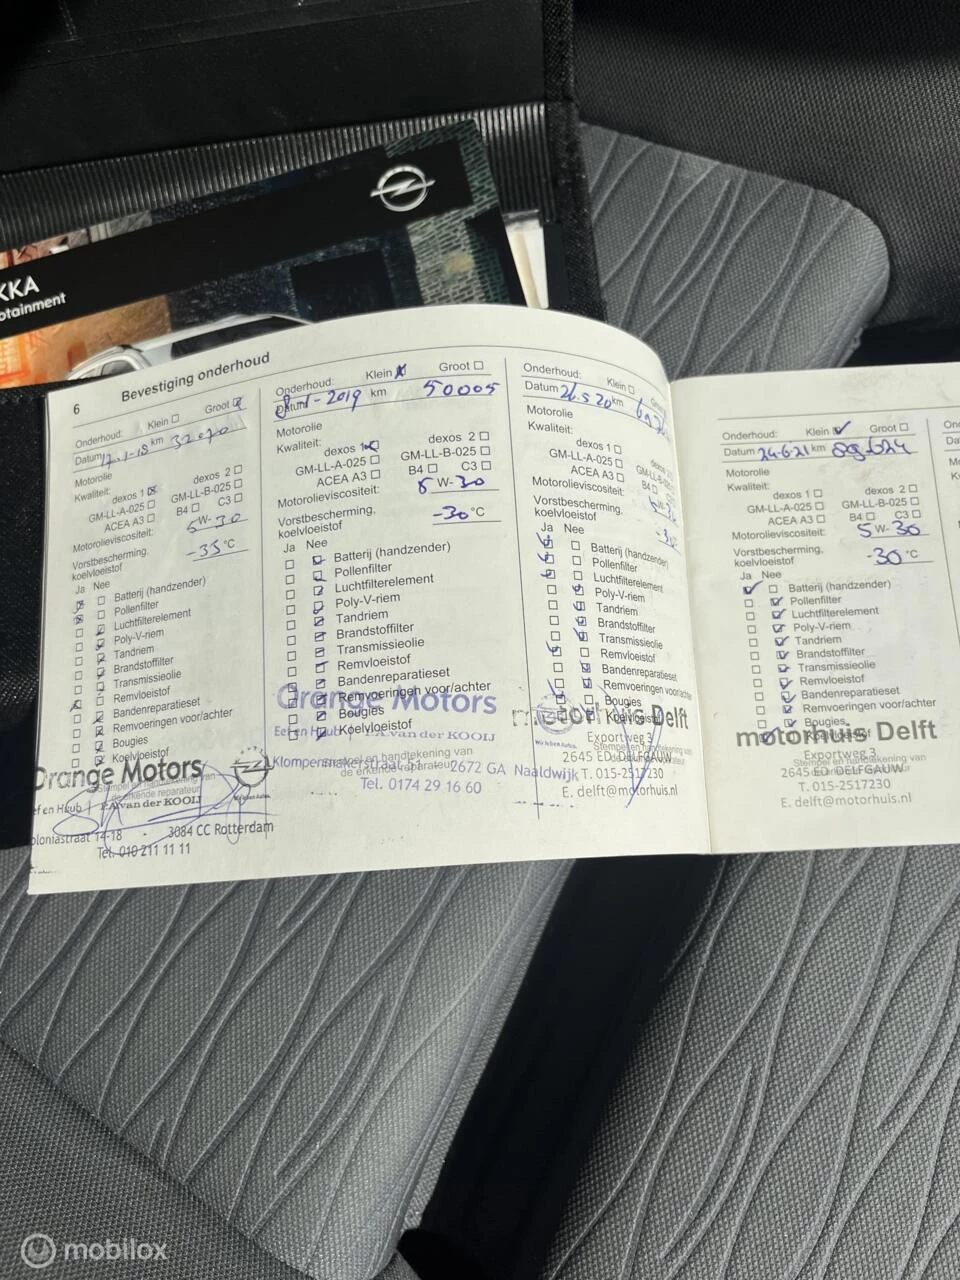 KKA
otainment
6 Bevestiging onderhoud
Onderhoud: Klein Groot
Datum 17-1-18 km 32020
Motorolie
Kwaliteit:
dexos 1 dexos 2
GM-LL-A-025 GM-LL-B-025
ACEA A3 B4 C3
Motorolieviscositeit: 5W-30
Vorstbescherming,
koelvloeistof -35 °C
Ja Nee
Batterij (handzender)
Pollenfilter
Luchtfilterelement
Poly-V-riem
Tandriem
Brandstoffilter
Transmissieolie
Remvloeistof
Bandenreparatieset
Remvoeringen voor/achter
Bougies
Koelvloeistof
Orange Motors
Stempel en handtekening van
de erkende reparateur
ef en Huub P.A van der KOOIJ
oloniastraat 14-18 - 3084 CC Rotterdam
Tel. 010 211 11 11
Onderhoud: Klein Groot
Datum 8-1-2019 km 50005
Motorolie
Kwaliteit:
dexos 1 dexos 2
GM-LL-A-025 GM-LL-B-025
ACEA A3 B4 C3
Motorolieviscositeit: 5 W-30
Vorstbescherming,
koelvloeistof -30 °C
Ja Nee
Batterij (handzender)
Pollenfilter
Luchtfilterelement
Poly-V-riem
Tandriem
Brandstoffilter
Transmissieolie
Remvloeistof
Bandenreparatieset
Remvoeringen voor/achter
Bougies
Koelvloeistof
Orange Motors
Eef en Huub P.A van der KOOIJ
Stempel en handtekening van
de erkende reparateur
Klompenmakerstraat 51 2672 GA Naaldwijk
Tel. 0174 29 16 60
Onderhoud: Klein
Datum 26.5.20 km
Motorolie
Kwaliteit:
dexos 1 dexos
GM-LL-A-025 GM-LL-B-025
ACEA A3 B4
Motorolieviscositeit: 5W-30
Vorstbescherming,
koelvloeistof -30
Ja Nee
Batterij (handzender)
Pollenfilter
Luchtfilterelement
Poly-V-riem
Tandriem
Brandstoffilter
Transmissieolie
Remvloeistof
Bandenreparatieset
Remvoeringen voor/achter
Bougies
Koelvloeistof
motorhuis Delft
Wij leben Autos.
Exportweg 3
Stempel en handtekening van
2645 ED DELFGAUW
T. 015-2517230
E. delft@motorhuis.nl
Onderhoud: Klein Groot
Datum 24-6-21 km 89624
Motorolie
Kwaliteit:
dexos 1 dexos 2
GM-LL-A-025 GM-LL-B-025
ACEA A3 B4 C3
Motorolieviscositeit: 5 W-30
Vorstbescherming,
koelvloeistof -30 °C
Ja Nee
Batterij (handzender)
Pollenfilter
Luchtfilterelement
Poly-V-riem
Tandriem
Brandstoffilter
Transmissieolie
Remvloeistof
Bandenreparatieset
Remvoeringen voor/achter
Bougies
Koelvloeistof
motorhuis Delft
Exportweg 3
Stempel en handtekening van
de erkende reparateur
2645 ED DELFGAUW
T. 015-2517230
E. delft@motorhuis.nl
mobilox